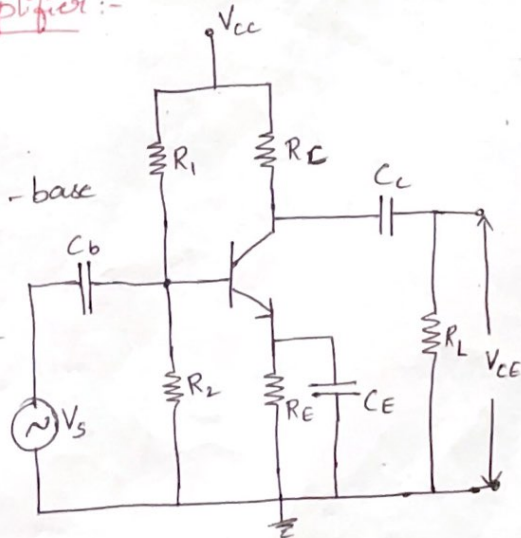 plifier :-
Vcc
R1
RC
- base
Cc
Cb
R2
RE
CE
RL
VCE
Vs